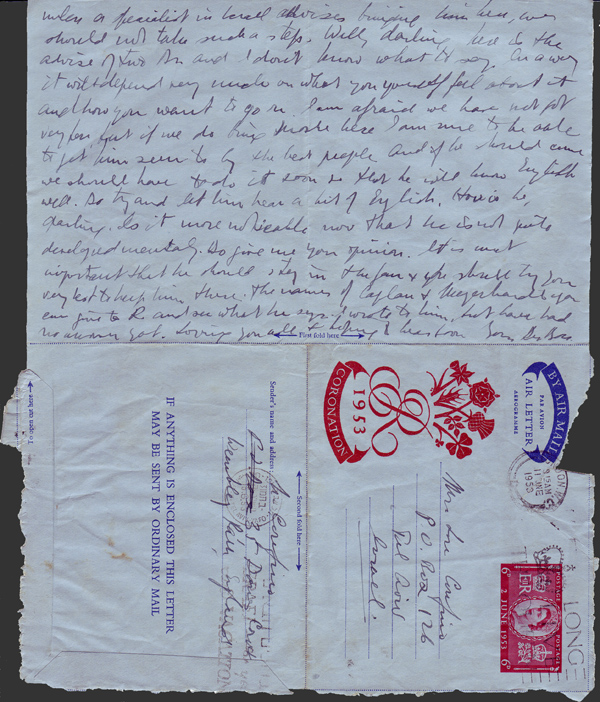 when a specialist in Israel advises bringing him here, we
should not take such a step. Willy darling, here is the
advise of two Drs and I don't know what to say. In a way
it will depend very much on what you yourself feel about it
and how you want to go on. I am afraid we have not got
very far but if we do bring here I am sure to be able
to get him seen to by the best people and if he should come
we should have to do it soon so that he will know English
well. So try and let him hear a bit of English. How is he,
darling. Is it more noticeable now that he is not quite
developed mentally. Do give me your opinion. It is most
important that he should stay in the & you should try your
very best to keep him there. The names of Caplan & you
can give to R and see what he says. I wrote to him, but have had
no answer yet. Loving you all & hoping to hear soon Your
First fold here
To open cut here
IF ANYTHING IS ENCLOSED THIS LETTER
MAY BE SENT BY ORDINARY MAIL
Sender's name and address
31
Wembley Park, England
Second fold here
CORONATION
1953
ER
BY AIR MAIL
PAR AVION
AIR LETTER
AEROGRAMME
Mrs
P.O. Box 126
Tel Aviv
Israel.
9 15 AM
11 JNE
1953
LONG
POSTAGE POSTAGE
6D 6D
E R
2 JUNE 1953